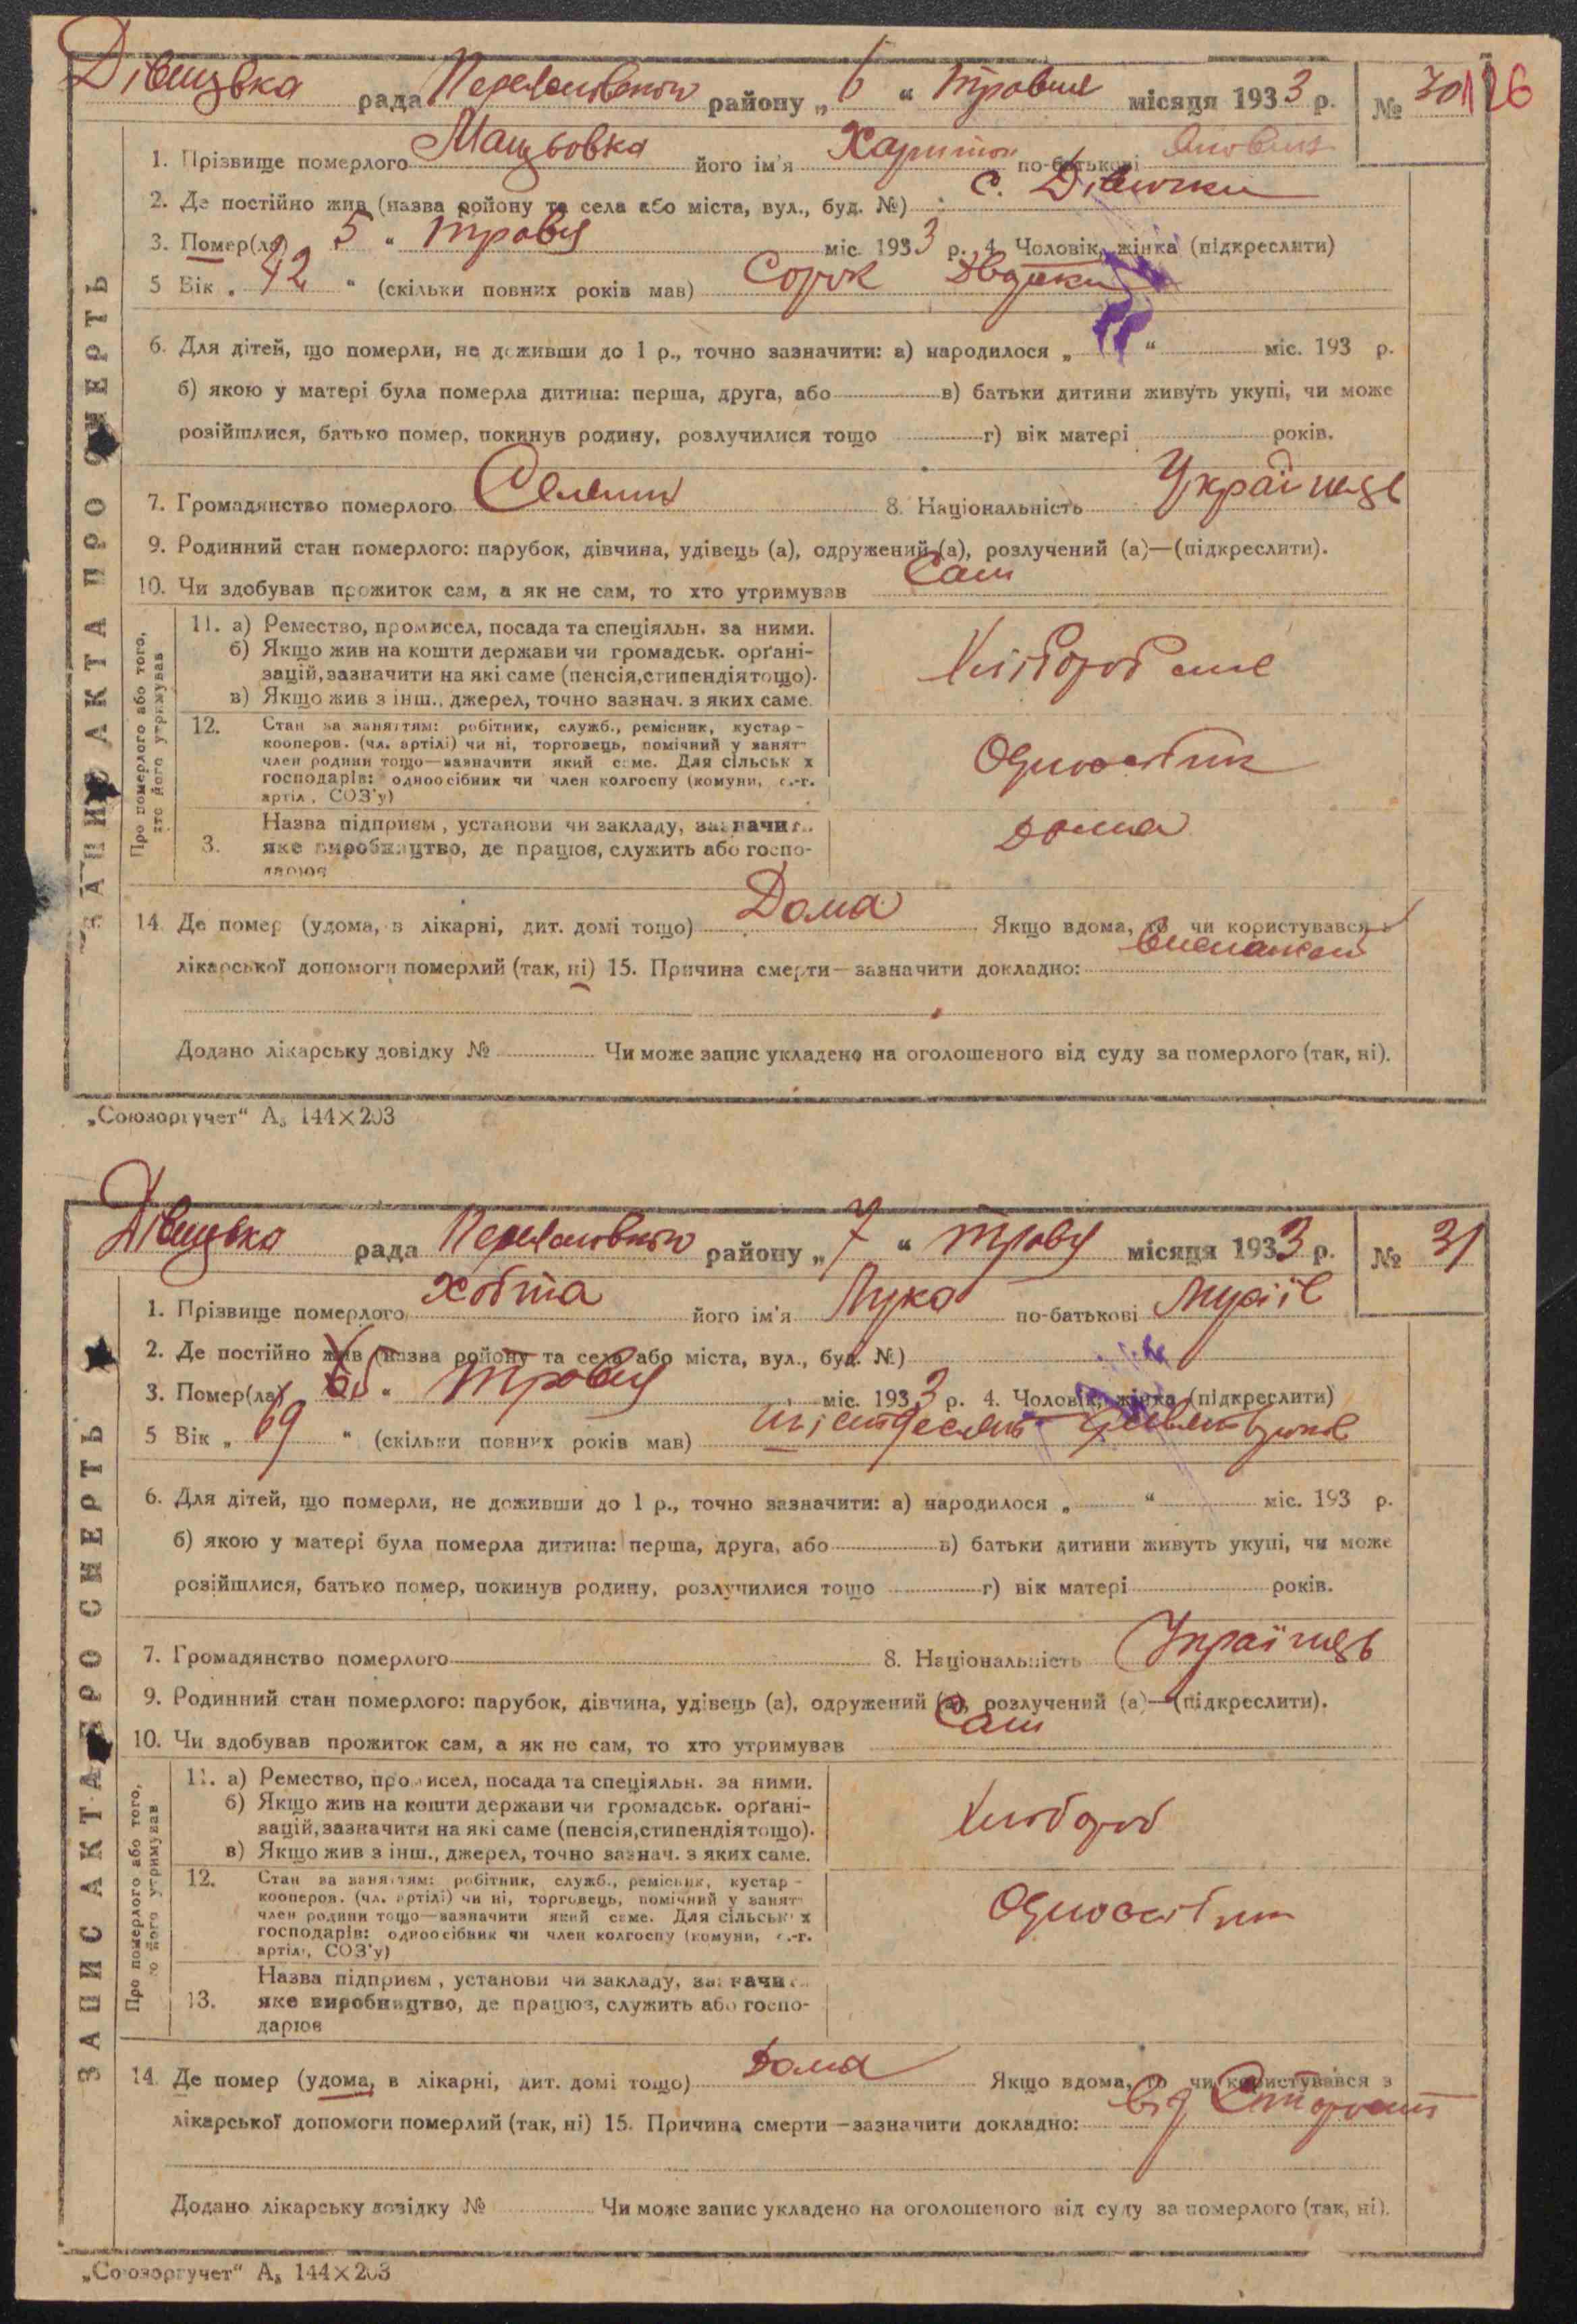 Дівицька рада Переяславського району „ 6 “ травня місяця 1933 р. № 30 126
ЗАПИС АКТА ПРО СМЕРТЬ
1. Прізвище померлого Мацьовка його ім'я Харитон по-батькові
2. Де постійно жив (назва району та села або міста, вул., буд. №) с. Дівички
3. Помер(ла) 5 “ травня міс. 1933 р. 4. Чоловік, жінка (підкреслити)
5 Вік „ 42 “ (скільки повних років мав) Сорок два роки
6. Для дітей, що померли, не доживши до 1 р., точно зазначити: а) народилося „ “ міс. 193 р.
б) якою у матері була померла дитина: перша, друга, або в) батьки дитини живуть укупі, чи може
розійшлися, батько помер, покинув родину, розлучилися тощо г) вік матері років.
7. Громадянство померлого Селянин 8. Національність Українець
9. Родинний стан померлого: парубок, дівчина, удівець (а), одружений (а), розлучений (а)—(підкреслити).
10. Чи здобував прожиток сам, а як не сам, то хто утримував Сам
Про померлого або того, хто його утримував
11. а) Ремество, промисел, посада та спеціяльн. за ними.
б) Якщо жив на кошти держави чи громадськ. орґані-
зацій, зазначити на які саме (пенсія, стипендія тощо).
в) Якщо жив з інш., джерел, точно зазнач. з яких саме.
12. Стан за заняттям: робітник, служб., ремісник, кустар-
кооперов. (чл. артілі) чи ні, торговець, помічний у занят-
член родини тощо—зазначити який саме. Для сільськ х
господарів: одноосібник чи член колгоспу (комуни, с.-г.
артіл, СОЗ'у)
Одноосібник
Назва підприєм, установи чи закладу, зазначит.
3. яке виробництво, де працює, служить або госпо-
дарює
дома
14. Де помер (удома, в лікарні, дит. домі тощо) Дома Якщо вдома, то чи користувався з
лікарської допомоги померлий (так, ні) 15. Причина смерти—зазначити докладно:
Додано лікарську довідку № Чи може запис укладено на оголошеного від суду за померлого (так, ні).
„Союзоргучет“ А₅ 144×203
Дівицька рада Переяславського району „ 7 “ травня місяця 1933 р. № 31
ЗАПИС АКТА ПРО СМЕРТЬ
1. Прізвище померлого Хобта його ім'я Лука по-батькові Мусіїв
2. Де постійно жив (назва району та села або міста, вул., буд. №)
3. Помер(ла) травня міс. 1933 р. 4. Чоловік, жінка (підкреслити)
5 Вік „ 69 “ (скільки повних років мав) шістдесят девять років
6. Для дітей, що померли, не доживши до 1 р., точно зазначити: а) народилося „ “ міс. 193 р.
б) якою у матері була померла дитина: перша, друга, або в) батьки дитини живуть укупі, чи може
розійшлися, батько помер, покинув родину, розлучилися тощо г) вік матері років.
7. Громадянство померлого 8. Національність Українець
9. Родинний стан померлого: парубок, дівчина, удівець (а), одружений (а), розлучений (а)—(підкреслити).
10. Чи здобував прожиток сам, а як не сам, то хто утримував Сам
Про померлого або того, хто його утримував
11. а) Ремество, промисел, посада та спеціяльн. за ними.
б) Якщо жив на кошти держави чи громадськ. орґані-
зацій, зазначити на які саме (пенсія, стипендія тощо).
в) Якщо жив з інш., джерел, точно зазнач. з яких саме.
Хлібороб
12. Стан за заняттям: робітник, служб., ремісник, кустар-
кооперов. (чл. артілі) чи ні, торговець, помічний у занят-
член родини тощо—зазначити який саме. Для сільськ х
господарів: одноосібник чи член колгоспу (комуни, с.-г.
артіл, СОЗ'у)
Одноосібник
Назва підприєм, установи чи закладу, зазначи
13. яке виробництво, де працює, служить або госпо-
дарює
14. Де помер (удома, в лікарні, дит. домі тощо) Дома Якщо вдома, то чи користувався з
лікарської допомоги померлий (так, ні) 15. Причина смерти—зазначити докладно: від
Додано лікарську довідку № Чи може запис укладено на оголошеного від суду за померлого (так, ні).
„Союзоргучет“ А₅ 144×203